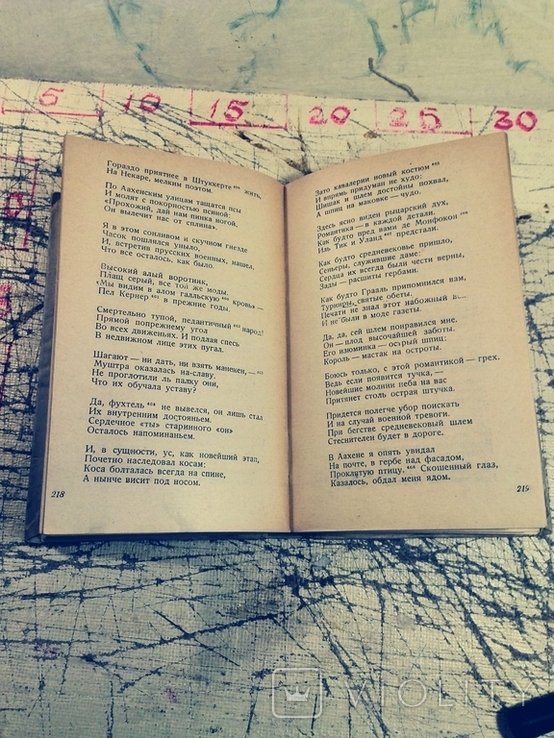 5 10 15 20 25 30
Гораздо приятнее в Штуккерте жить,
На Некаре, мелким поэтом.
По Аахенским улицам тащатся псы
И молят с покорностью псиной:
«Прохожий, дай нам пинка ногой,
Он вылечит нас от сплина».
Я в этом сонливом и скучном гнезде
Часок пошлялся уныло,
И, встретив прусских военных, нашел,
Что все осталось, как было.
Высокий алый воротник,
Плащ серый, все той же моды.
«Мы видим в алом галльскую кровь» —
Пел Кернер в прежние годы.
Смертельно тупой, педантичный народ!
Прямой попрежнему угол
Во всех движеньях. И подлая спесь
В недвижном лице этих пугал.
Шагают — ни дать, ни взять манекен, —
Муштра оказалась на-славу.
Не проглотили ль палку они,
Что их обучала уставу?
Да, фухтель не вывелся, он лишь стал
Их внутренним достояньем.
Сердечное «ты» старинного «он»
Осталось напоминаньем.
И, в сущности, ус, как новейший этап,
Почетно наследовал косам:
Коса болталась всегда на спине,
А нынче висит под носом.
218
Зато кавалерии новый костюм
И впрямь придуман не худо:
Шишак и шлем достойны похвал,
А шпиц на маковке — чудо.
Здесь ясно виден рыцарский дух,
Романтика — в каждой детали.
Как будто пред вами де Монфокон
Иль Тик и Уланд предстали.
Как будто средневековье пришло,
Сеньеры, служившие даме:
Сердца их всегда были чести верны,
Зады — расшиты гербами.
Как будто Грааль припомнился вам,
Турниры, святые обеты.
Печати не знал этот набожный
И не были в моде газеты.
Да, да, сей шлем понравился мне.
Он — плод высочайшей заботы.
Его изюминка — острый шпиц:
Король — мастак на остроты.
Боюсь только, с этой романтикой — грех,
Ведь если появится тучка, —
Новейшие молнии неба на вас
Притянет столь острая штучка.
Придется полегче убор поискать
И на случай военной тревоги.
При бегстве средневековый шлем
Стеснителен будет в дороге.
В Аахене я опять увидал
На почте, в гербе над фасадом,
Проклятую птицу. Скошенный глаз,
Казалось, обдал меня ядом.
219
VIOLITY